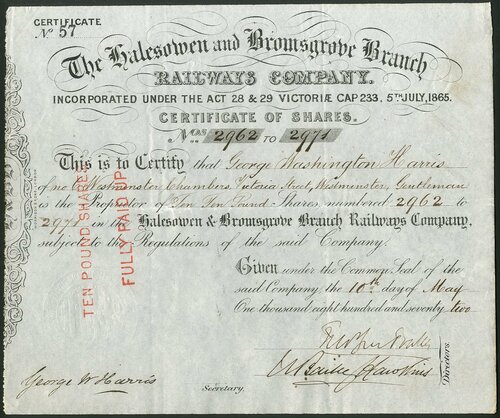 CERTIFICATE
No 57
The Halesowen and Bromsgrove Branch
RAILWAYS COMPANY.
INCORPORATED UNDER THE ACT 28 & 29 VICTORIÆ CAP 233, 5TH JULY, 1865.
CERTIFICATE OF SHARES.
Nos 2962 TO 2971
This is to Certify that George Washington Harris
of no 6 Westminster Chambers, Victoria Street, Westminster, Gentleman
is the Proprietor of Ten Ten Pound Shares numbered 2962 to
2971 in the Halesowen & Bromsgrove Branch Railways Company,
subject to the Regulations of the said Company.
Given under the Common Seal of the
said Company, the 10th day of May
One thousand eight hundred and seventy two
TEN POUND SHARES
FULLY PAID UP
George W Harris
Secretary.
Directors.